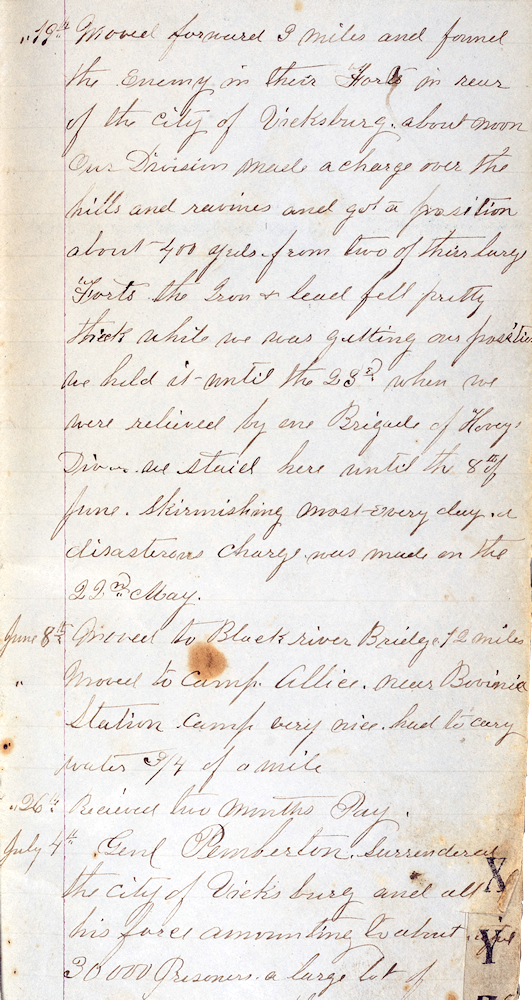 " 19th Moved forward 3 miles and found
the Enemy in their Forts in rear
of the city of Vicksburg. about noon
Our Division made a charge over the
hills and ravines and got a position
about 400 yds. from two of thier large
Forts the Iron & lead fell pretty
thick while we was getting our position
we held it until the 23rd when we
were relieved by one Brigade of Hoveys
Divn. we staid here until the 8th of
June. Skirmishing most every day. a
disasterous charge was made on the
22nd May.
June 8th Moved to Black river Bridge 12 miles
" Moved to Camp Allice. near Bovinia
Station camp very nice. had to cary
water 3/4 of a mile
" 26th Recieved two months Pay.
July 4th Genl Pemberton Surrendered
the city of Vicksburg and all
his force amounting to about
30000 Prisoners a large lot of
X
Y